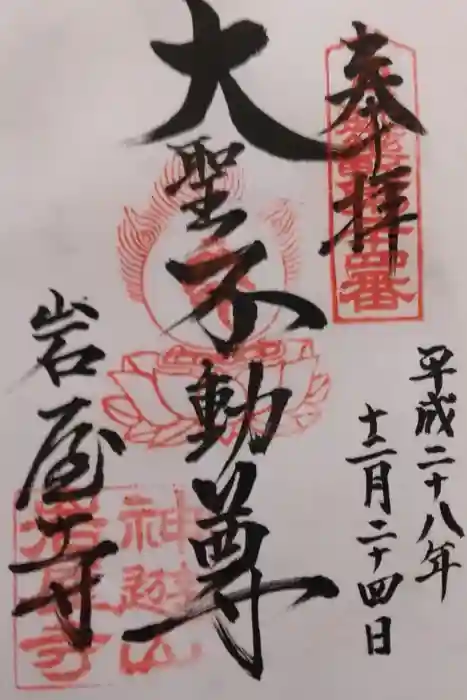 奉拝
平成二十八年
十二月二十四日
大聖不動尊
岩屋寺
神鉾山
岩屋寺